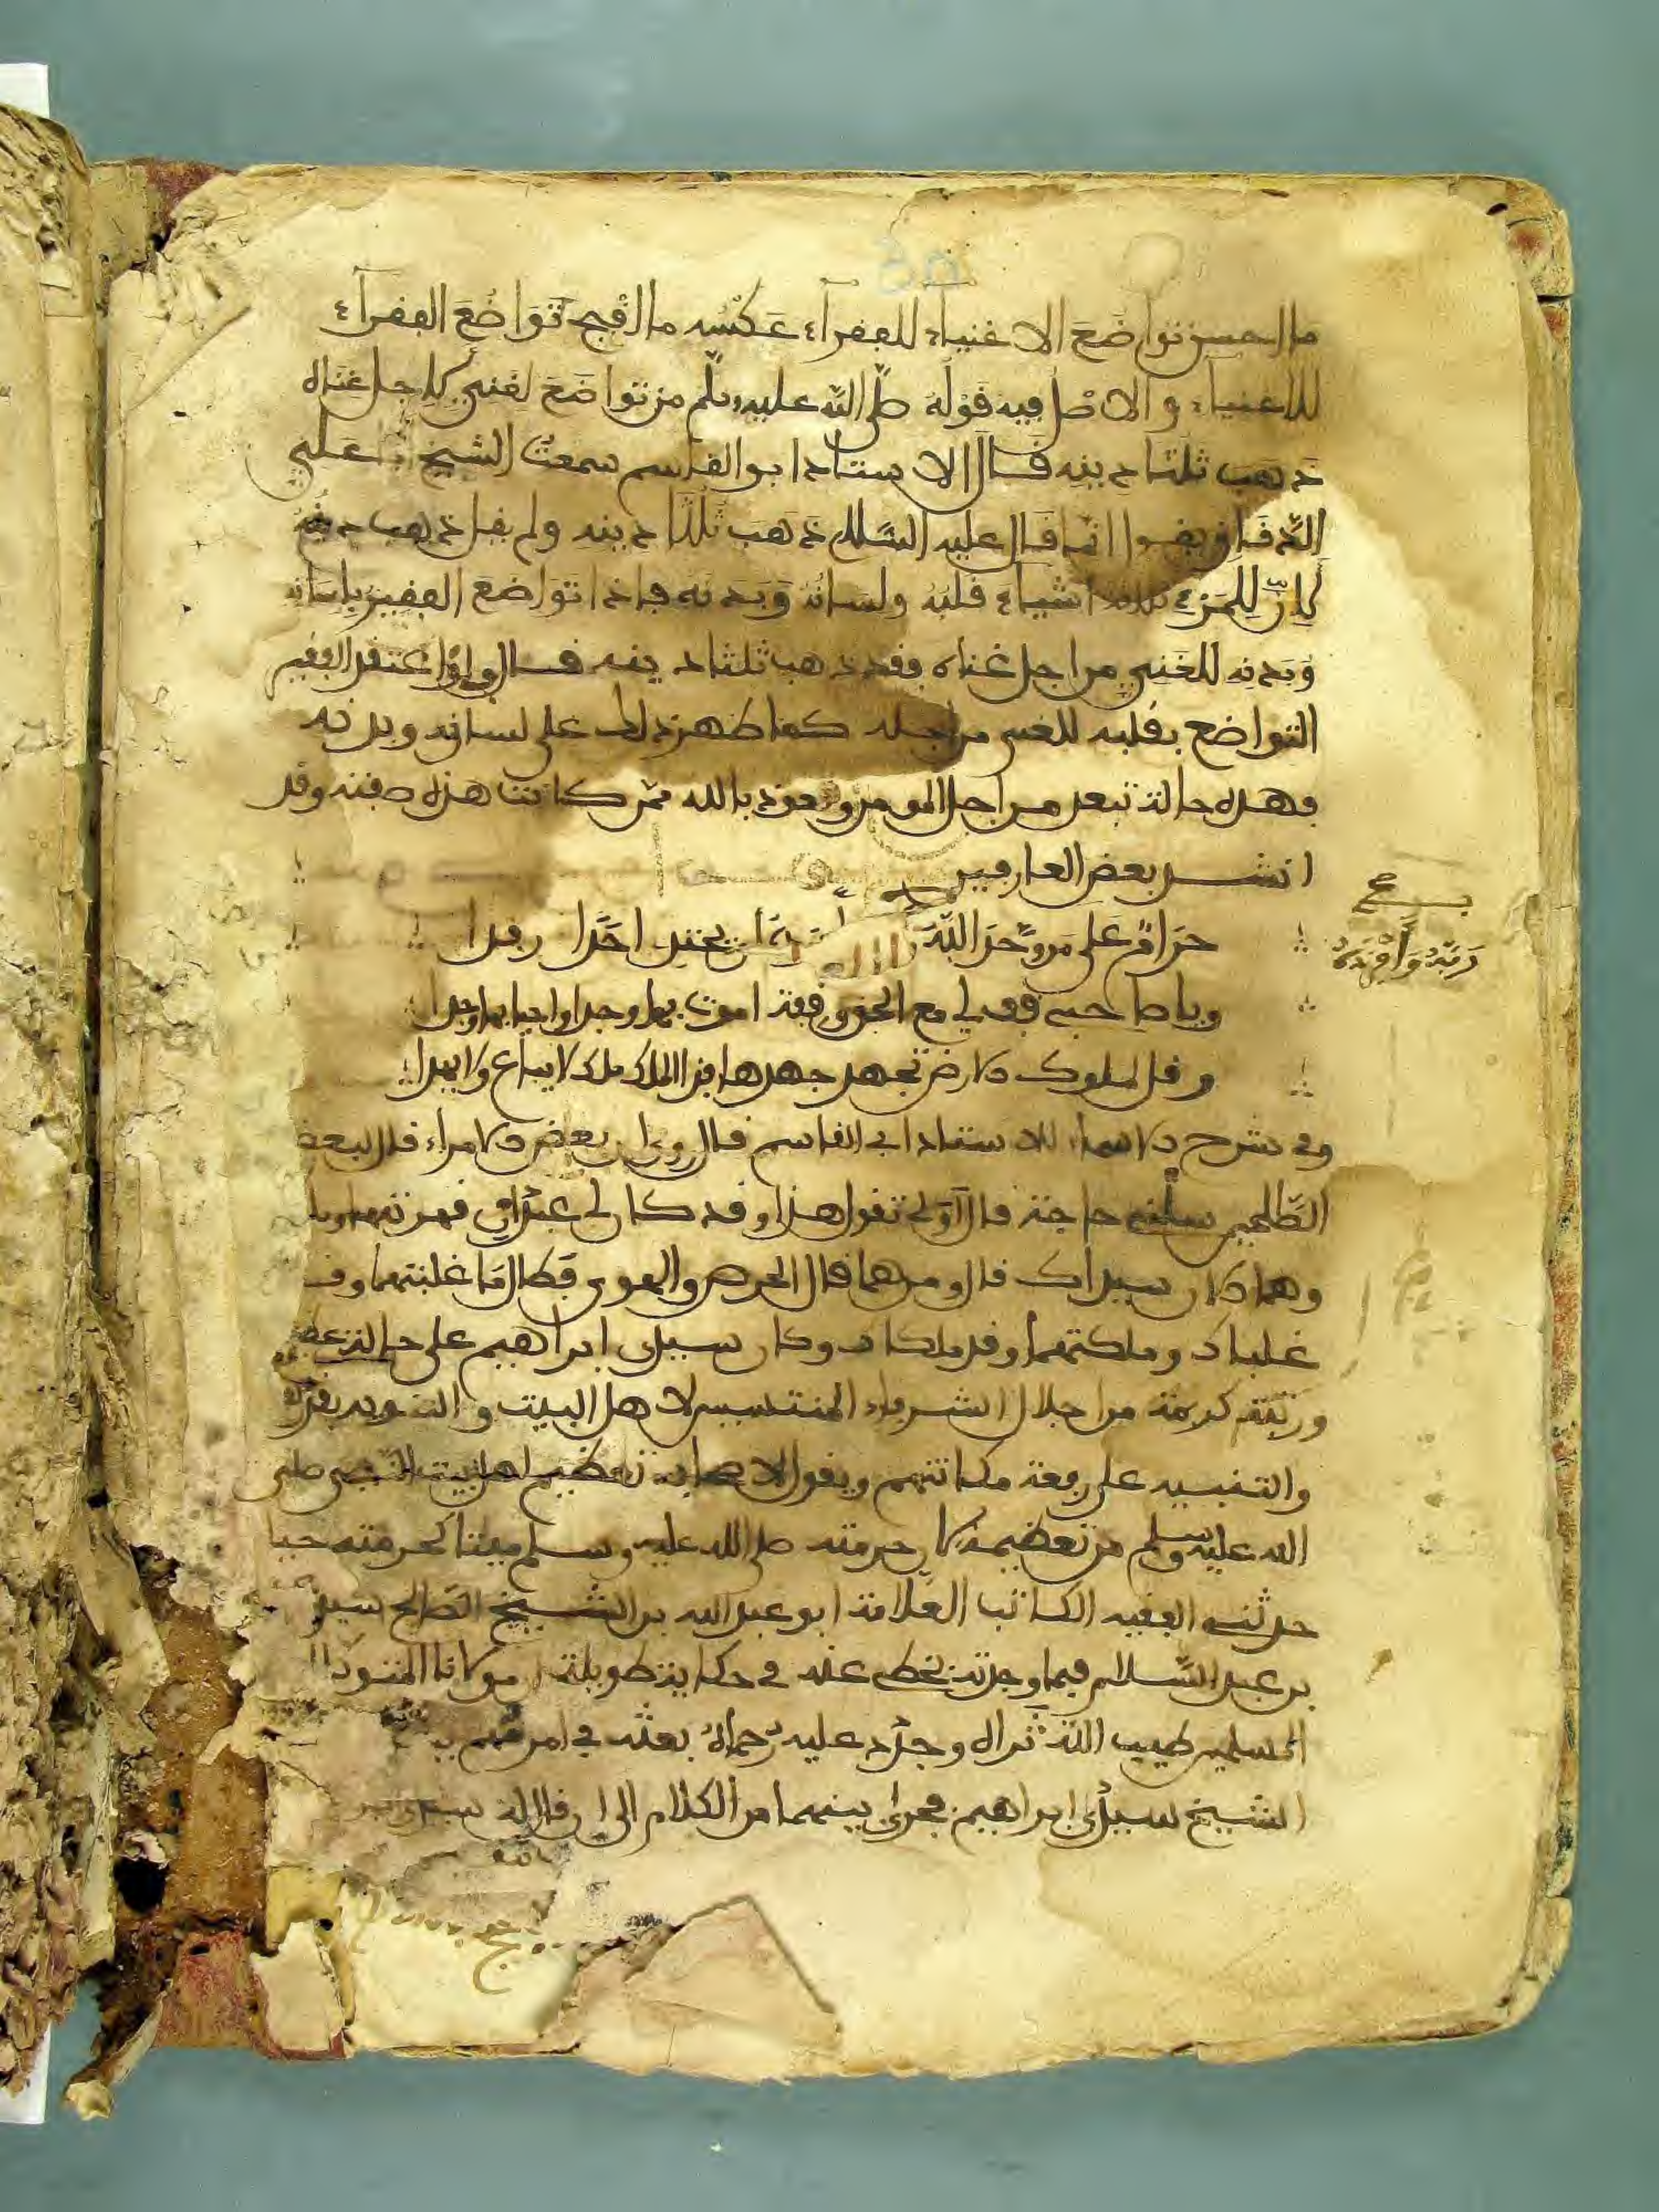 ما احسن تواضع الاغنياء للفقرآء عكسه ما اقبح تواضع الفقرآء
للاغنياء والاصل فيه قوله صلى الله عليه وسلم من تواضع لغني لاجل غناه
ذهب ثلثا دينه قال الاستاذ ابو القاسم سمعت الشيخ ابا علي
الدقاق يقول انما قال عليه السلام ذهب ثلثا دينه ولم يقل ذهب دينه
لان للمرء ثلاثة اشياء قلبه ولسانه وبدنه فاذا تواضع الفقير بلسانه
وبدنه للغني من اجل غناه فقد ذهب ثلثا دينه قال ولو اعتقد الفقير
التواضع بقلبه للغني من اجله كما ظهر ذلك على لسانه وبدنه
فهذه حالة تبعد من اجل المومن ونعوذ بالله ممن كانت هذه صفته وقد
انشد بعض العارفين
حرام على من وحد الله احدا رفدا
ويا صاحبي قف لي مع الحق وقفة اموت بها وجدا واحيا بها وجدا
وقل لملوك الارض تجهد جهدها فذا الملك ملك لا يباع ولا يهدا
وفي شرح الاسماء للاستاذ ابي القاسم قال روي ان بعض الامراء قال لبعض
الصالحين سلني حاجة قال اولي تقول هذا وقد كان لي عبدان قهرتهما
وهما كان سيداك قال ومن هما قال الحرص والهوى فطال ما غلبتهما وقد
غلباك وملكتهما وقد ملكاك وكان سيدي ابراهيم على حالة عظيمة
ورتبة كريمة من اجلال الشرفاء المنتسبين لاهل البيت والتنويه بقدرهم
والتنبيه على رفعة مكانتهم ويقول لاصحابه تعظيم اهل بيت النبي صلى
الله عليه وسلم من تعظيمه لان حرمته صلى الله عليه وسلم ميتا كحرمته حيا
حدثني الفقيه الكاتب العلامة ابو عبد الله بن الشيخ الصالح سيدي
بن عبد السلام فيما وجدته بخطه عنه في حكاية طويلة ان مولانا المتوكل
المسلمين طيب الله ثراه وجدد عليه رحماه بعثه في امر مهم
الشيخ سيدي ابراهيم فجرى بينهما من الكلام الى ان قال له سيدي